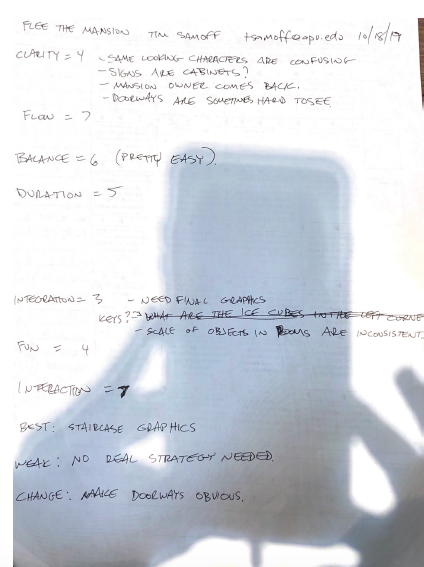 FLEE THE MANSION TIM SAMOFF tsamoff@apu.edu 10/18/19
CLARITY = 4 - SAME LOOKING CHARACTERS ARE CONFUSING
- SIGNS ARE CABINETS?
- MANSION OWNER COMES BACK.
- DOORWAYS ARE SOMETIMES HARD TO SEE
FLOW = 7
BALANCE = 6 (PRETTY EASY).
DURATION = 5
INTEGRATION = 3 - NEED FINAL GRAPHICS
KEYS? → WHAT ARE THE ICE CUBES IN THE LEFT CORNE
- SCALE OF OBJECTS IN ROOMS ARE INCONSISTENT.
FUN = 4
INTERACTION = 7
BEST: STAIRCASE GRAPHICS
WEAK: NO REAL STRATEGY NEEDED.
CHANGE: MAKE DOORWAYS OBVIOUS.